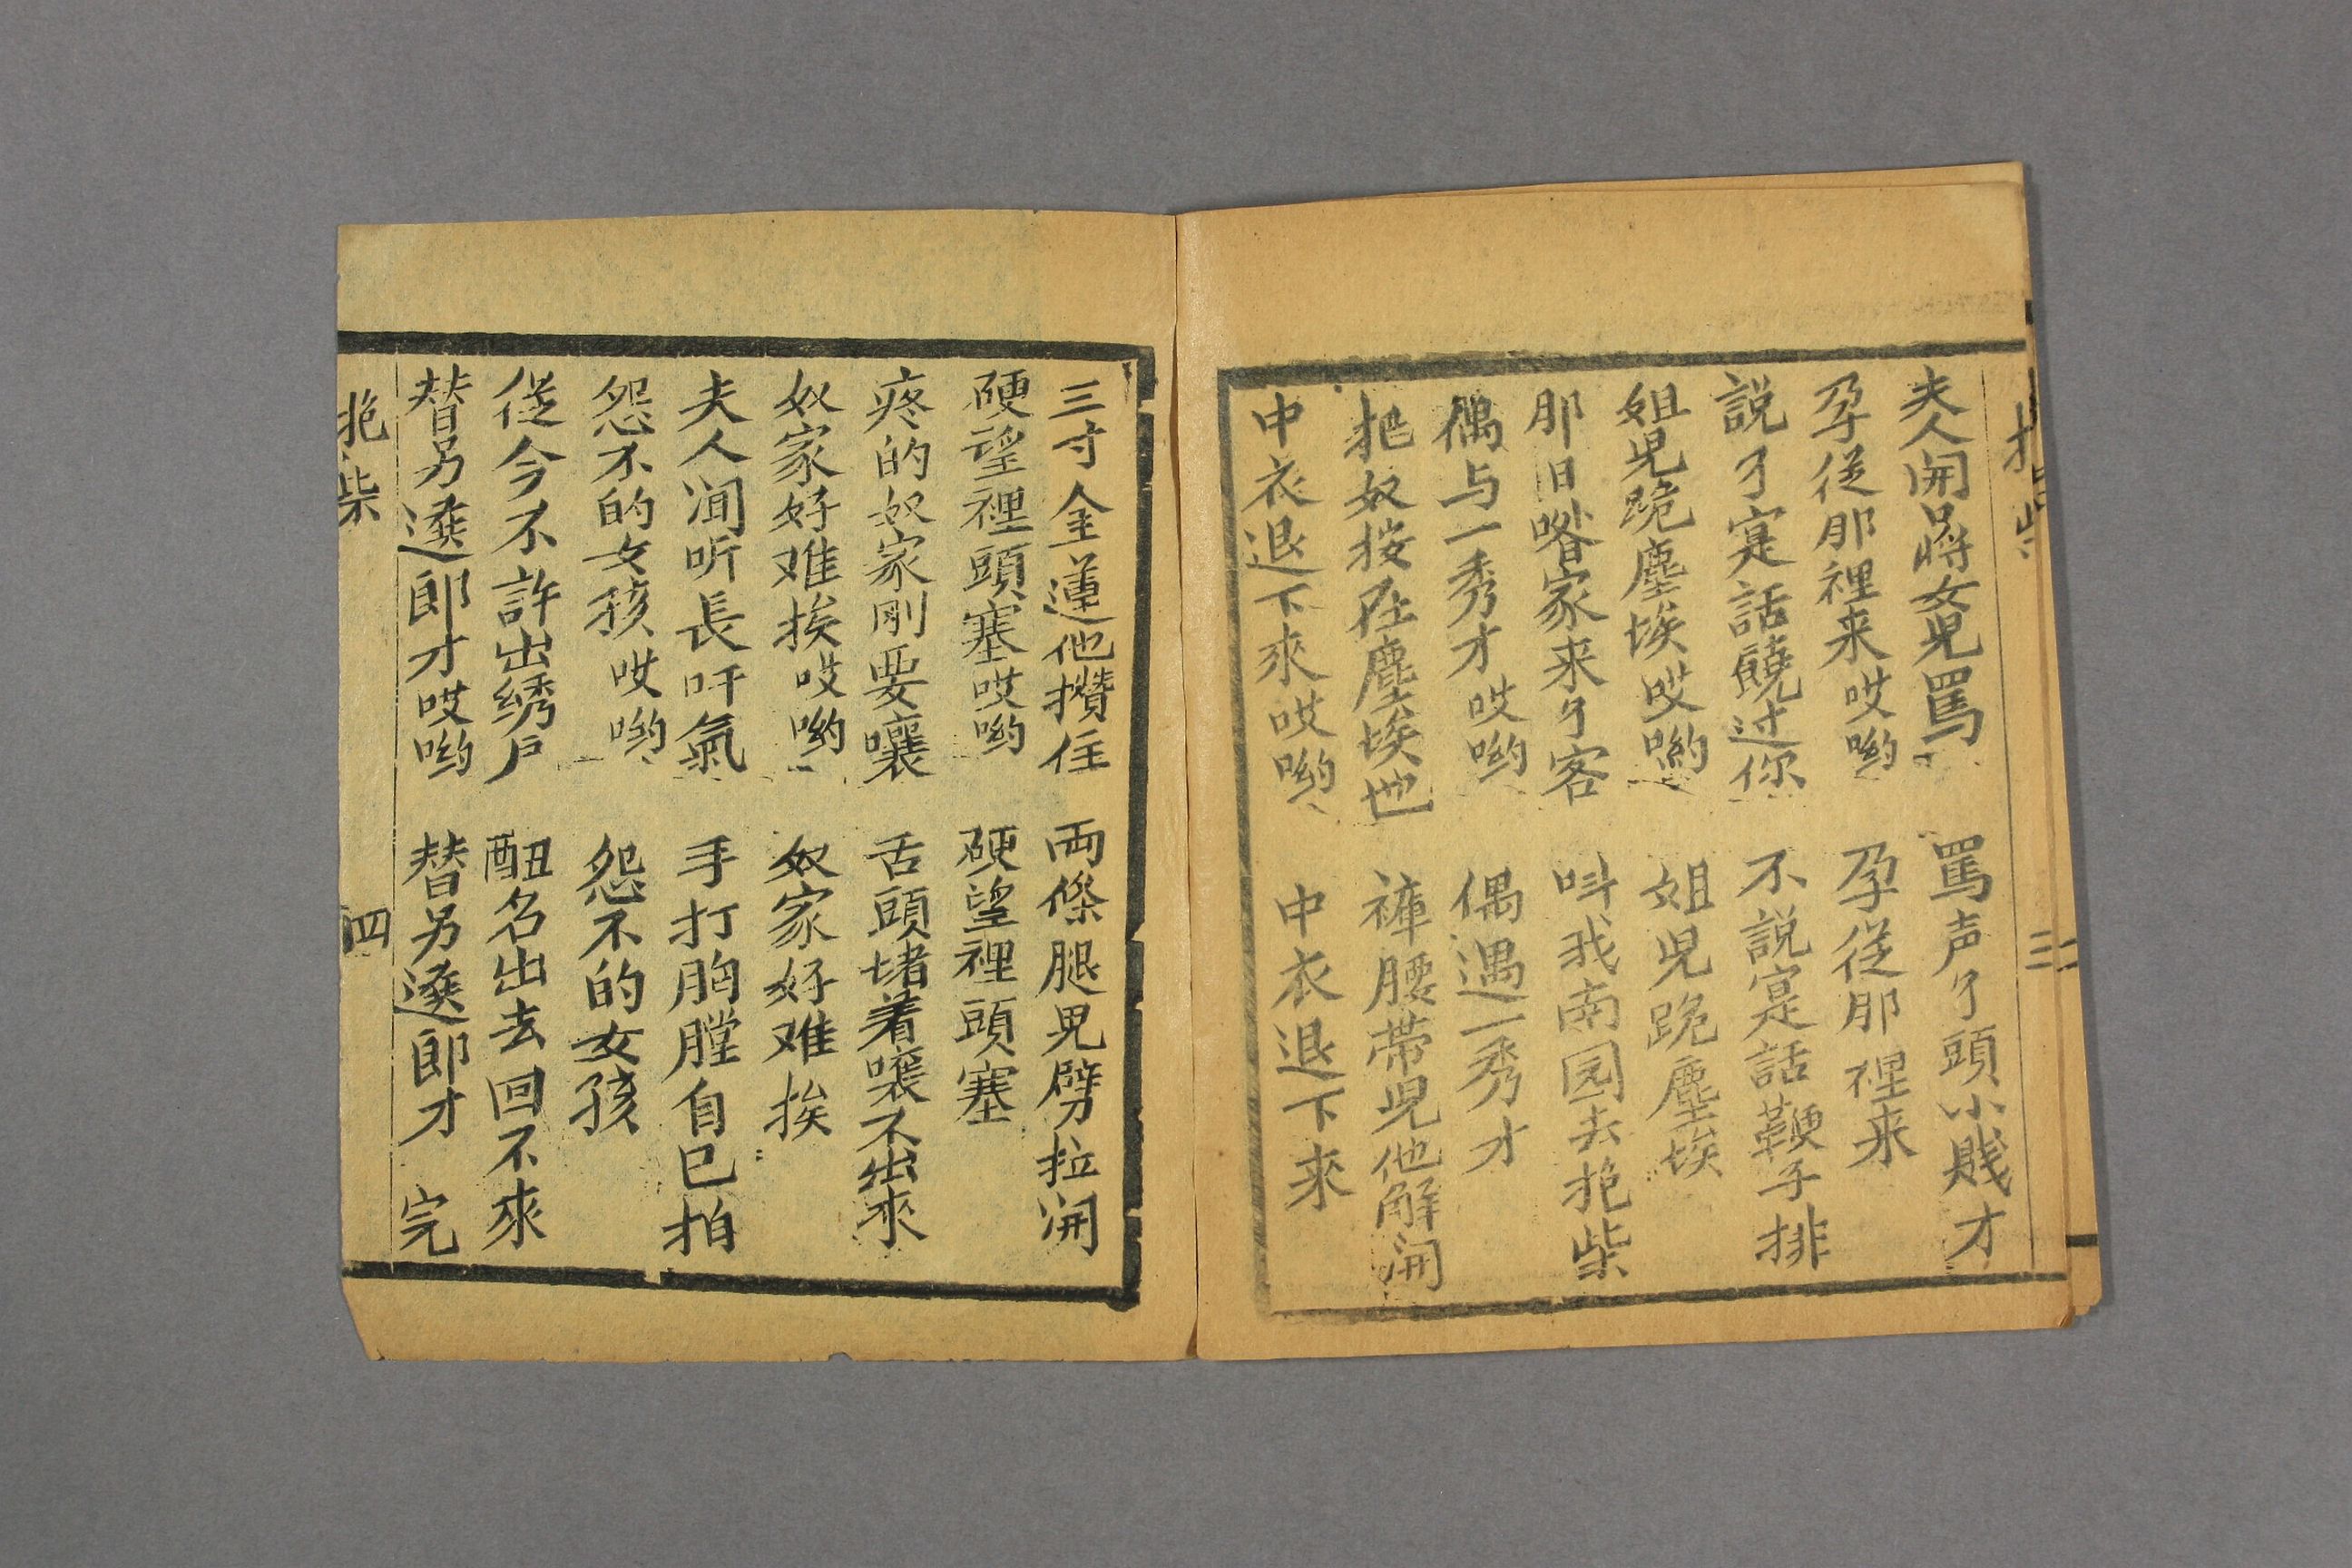 夫人開𠵇將女児罵　罵声了頭小賤才
孕従那裡来哎喲　孕従那裡来
説了寔話饒过你　不説寔話鞭子排
姐児跪塵埃哎喲　姐児跪塵埃
那日喒家来了客　呌我南园去抱柴
偶与一秀才哎喲　偶遇一秀才
把奴按在塵埃地　褲腰帶児他解開
中衣退下來哎喲　中衣退下來
三
三寸金蓮他攢住　両條腿児劈拉開
硬望裡頭塞哎喲　硬望裡頭塞
疼的奴家剛要嚷　舌頭堵着嚷不出來
奴家好难挨哎喲　奴家好难挨
夫人闻听長吁氣　手打胸膛自己拍
怨不的女孩哎喲　怨不的女孩
従今不許出绣户　醜名出去回不來
替另選郎才哎喲　替另選郎才　完
抱柴
四